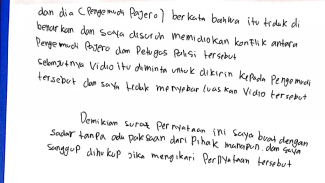 dan dia (Pengemudi Pajero) berkata bahwa itu tidak di
benarkan dan saya disuruh memidiokan konflik antara
Pengemudi Pajero dan Petugas Polisi tersebut
selanjutnya Vidio itu diminta untuk dikirin kepada Pengemudi
tersebut dan saya tidak menyebar luaskan Vidio tersebut
Demikian surat pernyataan ini saya buat dengan
sadar tanpa ada paksaan dari Pihak manapun. dan saya
sanggup dihukup jika mengikari Pernyataan tersebut